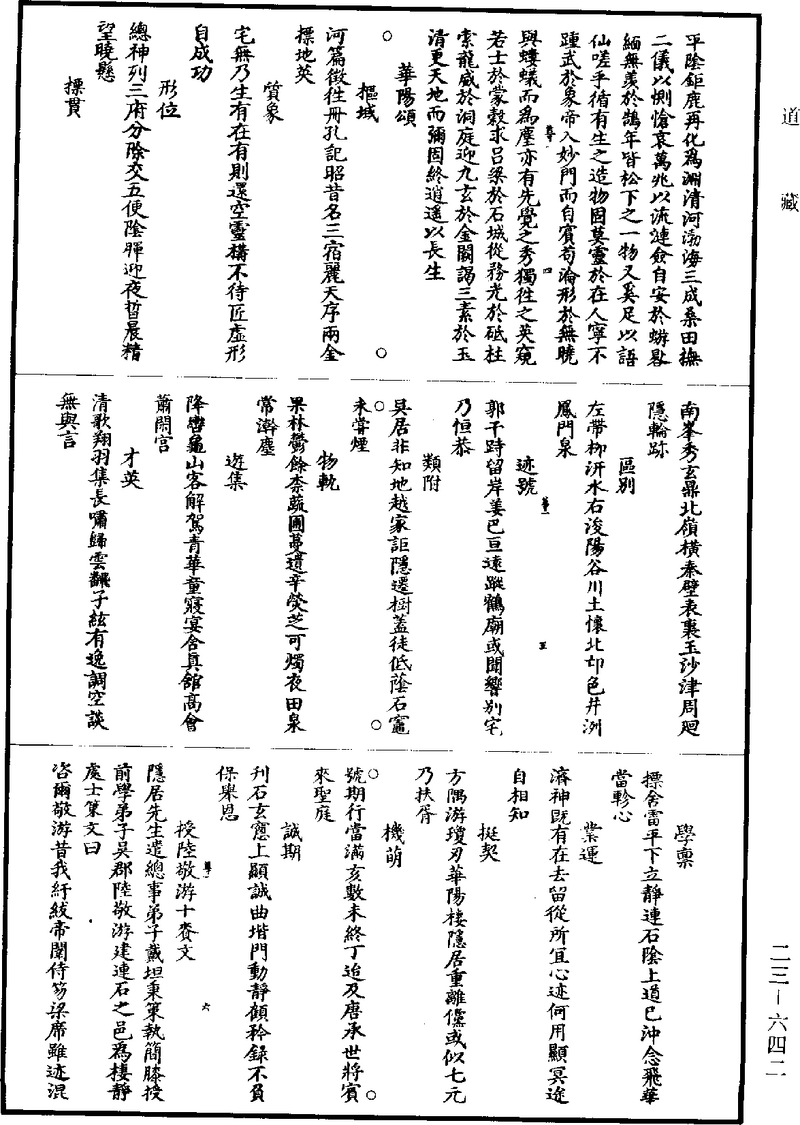 道藏
平陰鉅鹿再化爲淵清河渤海三成桑田撫
二儀以惻愴哀萬兆以流漣僉自安於蜉晷
緬無羨於鵠年皆松下之一物又奚足以語
仙嗟乎循有生之造物固莫靈於在人寧不
踵武於象帝入妙門而自賓苟淪形於無曉
與螻蟻而爲塵亦有先覺之秀獨徃之英窺
若士於蒙穀求吕梁於石城從務光於砥柱
索龍威於洞庭迎九玄於金闕謁三素於玉
清更天地而彌固終逍遥以長生
華陽頌
樞域
河篇徵徃册孔記昭昔名三宿麗天序兩金
摽地英
質象
宅無乃生有在有則還空靈構不待匠虚形
自成功
形位
總神列三府分陰交五便陰暉迎夜晢晨精
望曉懸
摽貫
南峯秀玄鼎北嶺横秦壁表裏玉沙津周迴
隱輪跡
區別
左帶柳汧水右浚陽谷川土懷北邙色井洲
鳳門泉
迹號
郭干跱留岸姜巴亘遠蹤鶴廟或聞響別宅
乃恒恭
類附
吳居非知地越家詎隱遷樹蓋徒低蔭石竈
未甞煙
物軌
果林鬱餘柰蔬圃蔓遺辛熒芝可燭夜田泉
常澣塵
遊集
降轡龜山客解駕青華童寢宴含真館高會
蕭閑宮
才英
清歌翔羽集長嘯歸雲飜子絃有逸調空談
無與言
學稟
摽舍雷平下立静連石陰上道已沖念飛華
當軫心
業運
濟神既有在去留從所宜心迹何用顯冥途
自相知
挺契
方隅游瓊刃華陽棲隱居重離儻或似七元
乃扶胥
機萌
號期行當滿亥數未終丁迨及唐承世將賓
來聖庭
誠期
刋石玄窻上顯誠曲堦門動靜顧矜録不負
保舉恩
授陸敬游十賚文
隱居先生遣總事弟子戴坦秉策執簡膝授
前學弟子吳郡陸敬游建連石之邑爲棲静
處士策文曰
咨爾敬游昔我紆紱帝闈侍笏梁席雖迹混
二三—六四二